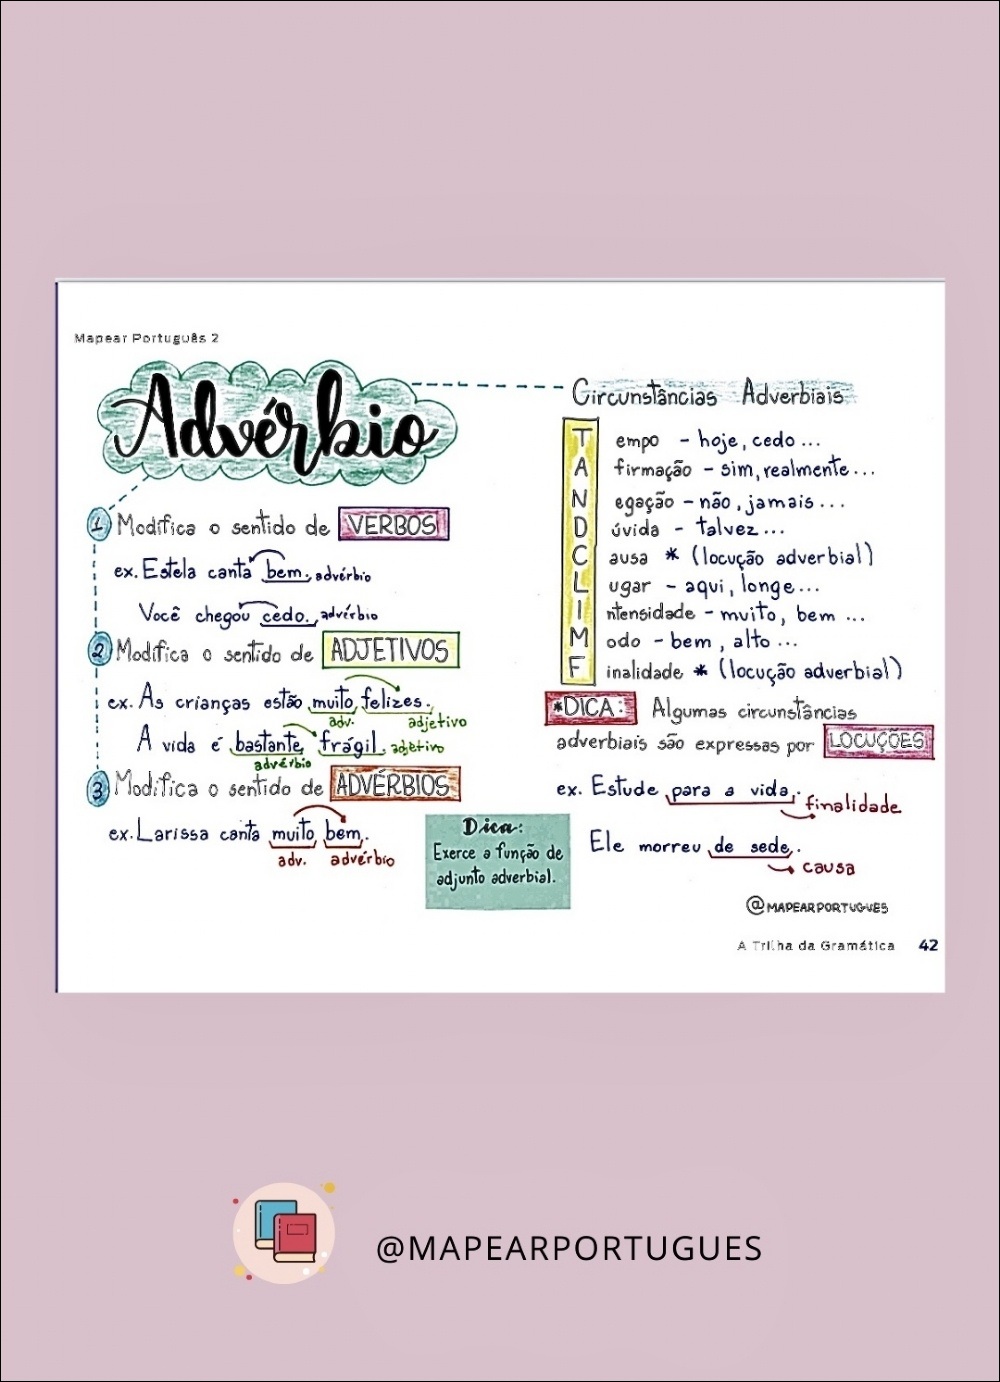 Mapear Português 2
Advérbio
1 Modifica o sentido de VERBOS
ex. Estela canta bem. advérbio
Você chegou cedo. advérbio
2 Modifica o sentido de ADJETIVOS
ex. As crianças estão muito felizes.
adv. adjetivo
A vida é bastante frágil. adjetivo
advérbio
3 Modifica o sentido de ADVÉRBIOS
ex. Larissa canta muito bem.
adv. advérbio
Dica:
Exerce a função de
adjunto adverbial.
Circunstâncias Adverbiais
Tempo - hoje, cedo...
Afirmação - sim, realmente...
Negação - não, jamais...
Dúvida - talvez...
Causa * (locução adverbial)
Lugar - aqui, longe...
Intensidade - muito, bem ...
Modo - bem, alto ...
Finalidade * (locução adverbial)
*DICA: Algumas circunstâncias
adverbiais são expressas por LOCUÇÕES
ex. Estude para a vida.
finalidade
Ele morreu de sede.
causa
@MAPEARPORTUGUES
A Trilha da Gramática 42
@MAPEARPORTUGUES